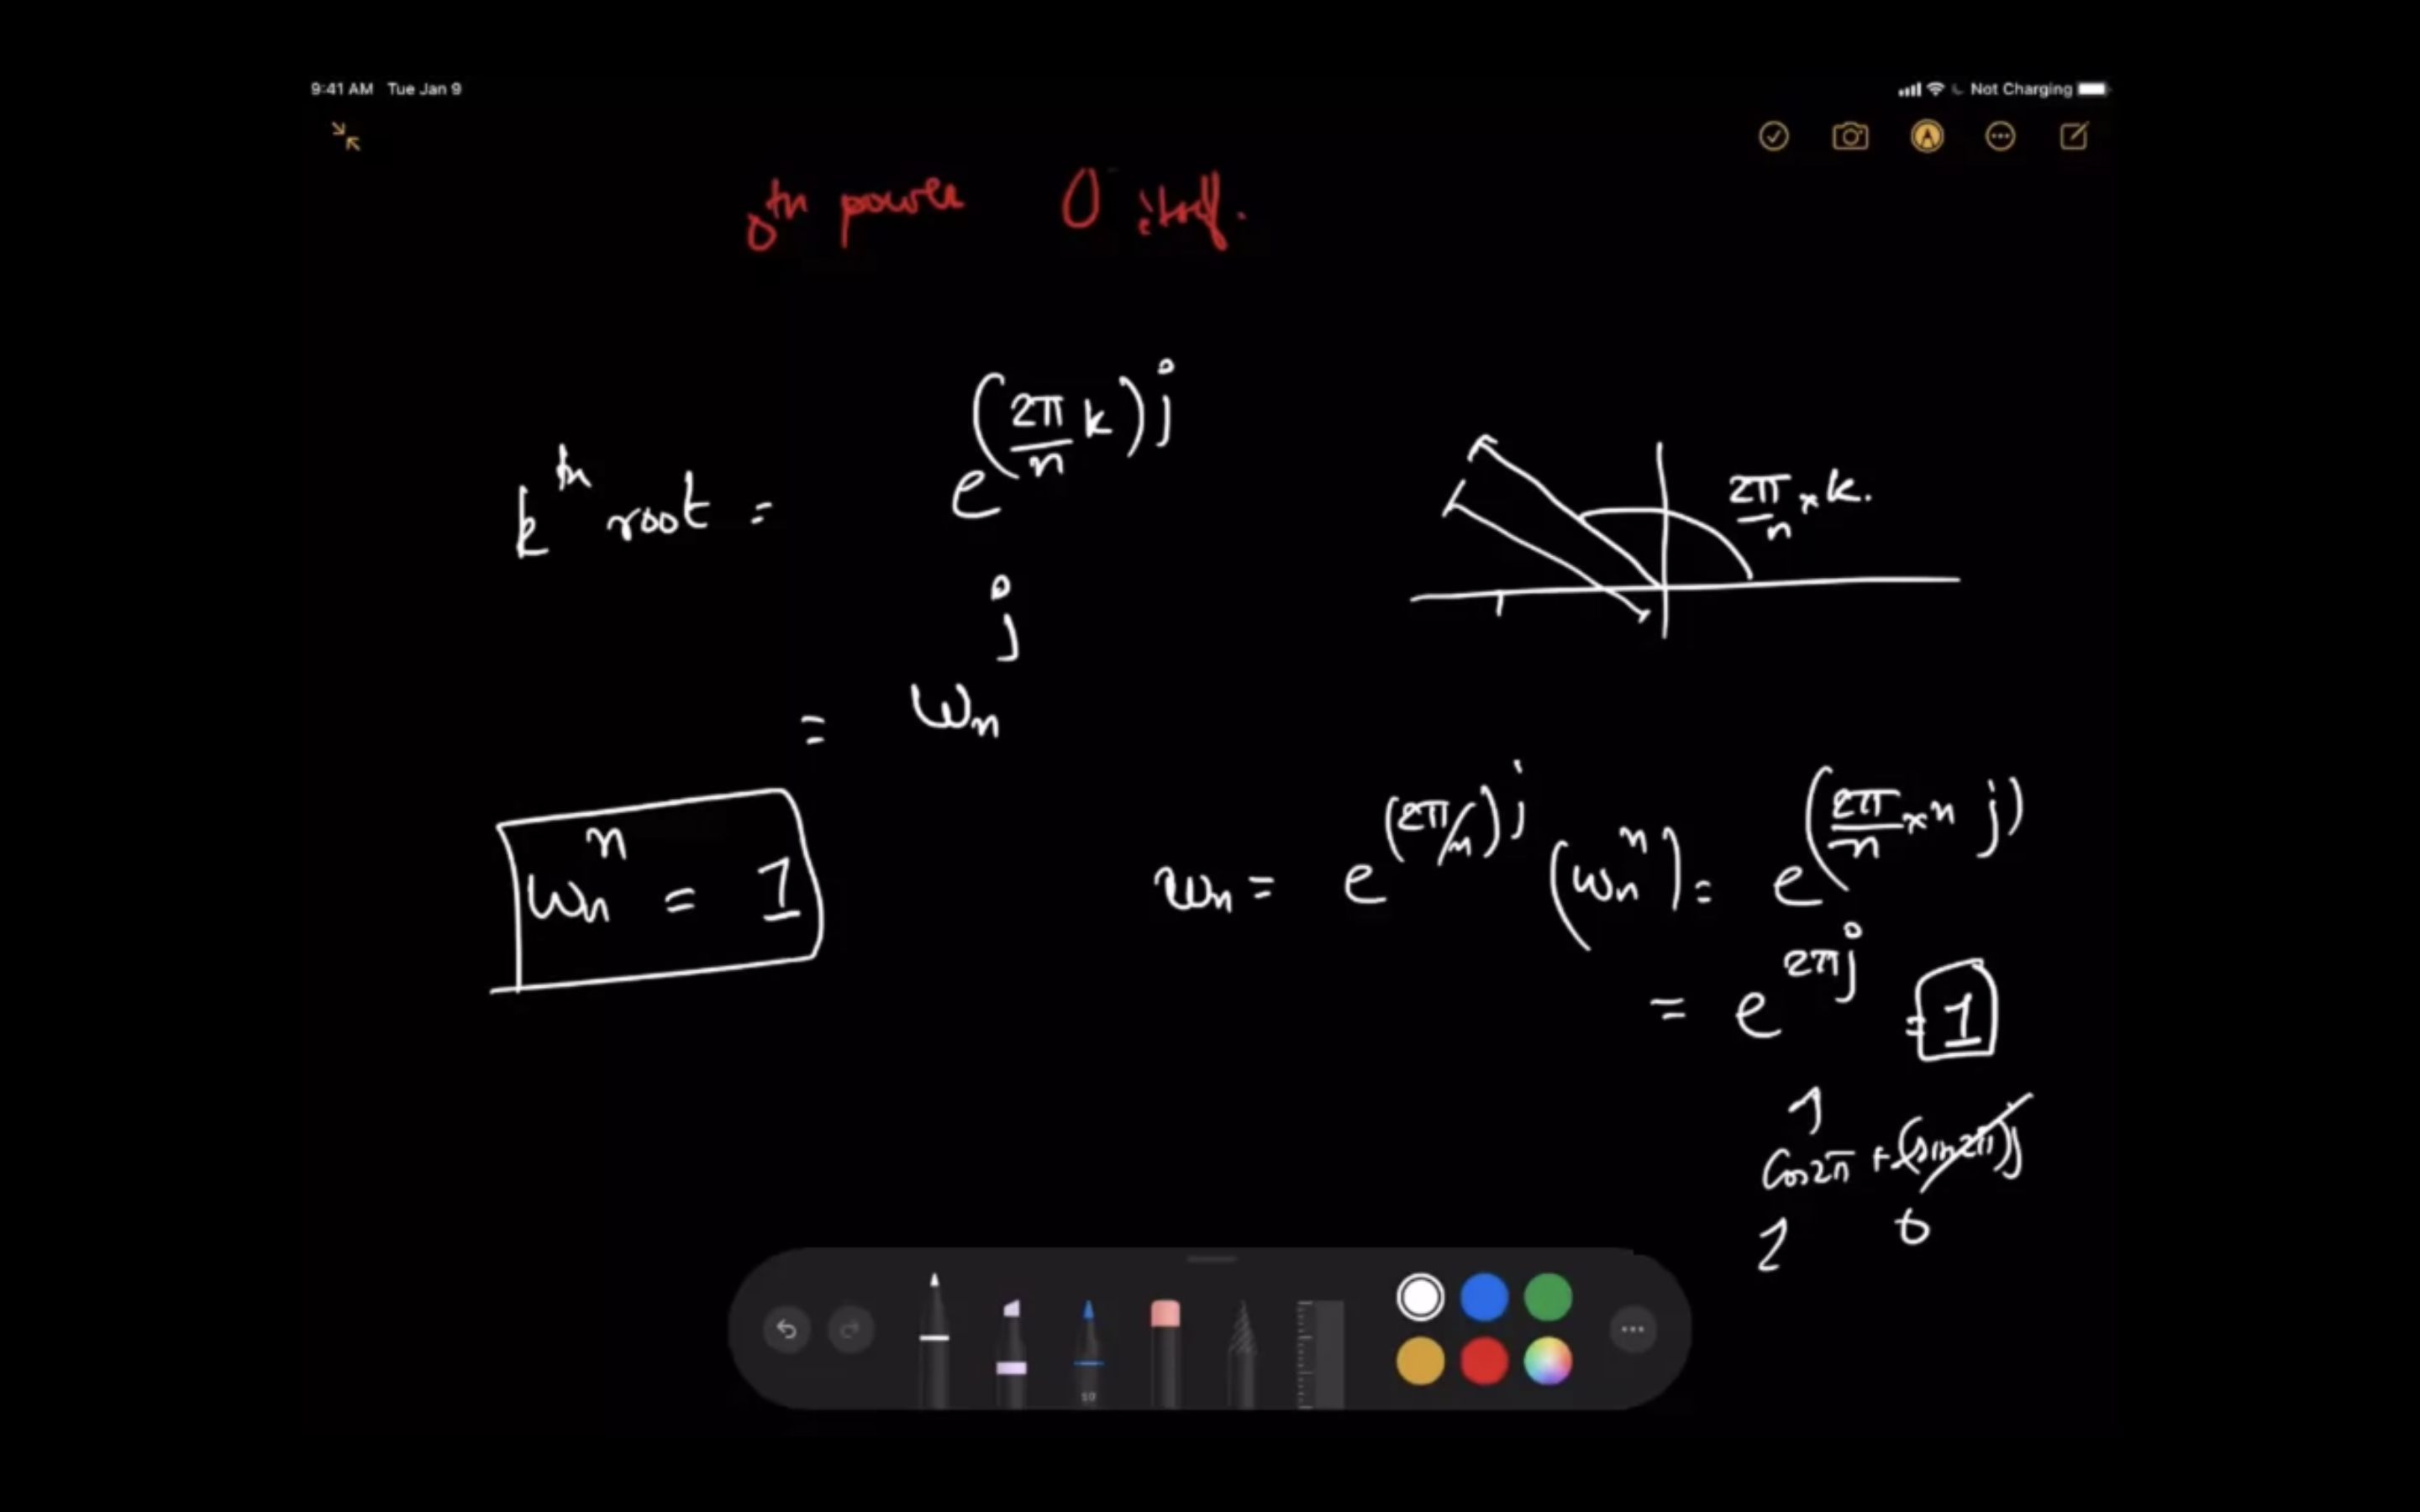 9:41 AM Tue Jan 9
Not Charging
0th power 0 itself.
kth root = e^(2π/n k)j
2π/n × k.
= ωn^j
ωn^n = 1
ωn = e^(2π/n)j (ωn^n) = e^(2π/n × n j)
= e^2πj = 1
1
Cos2π + (sin2π)j
1 0
50